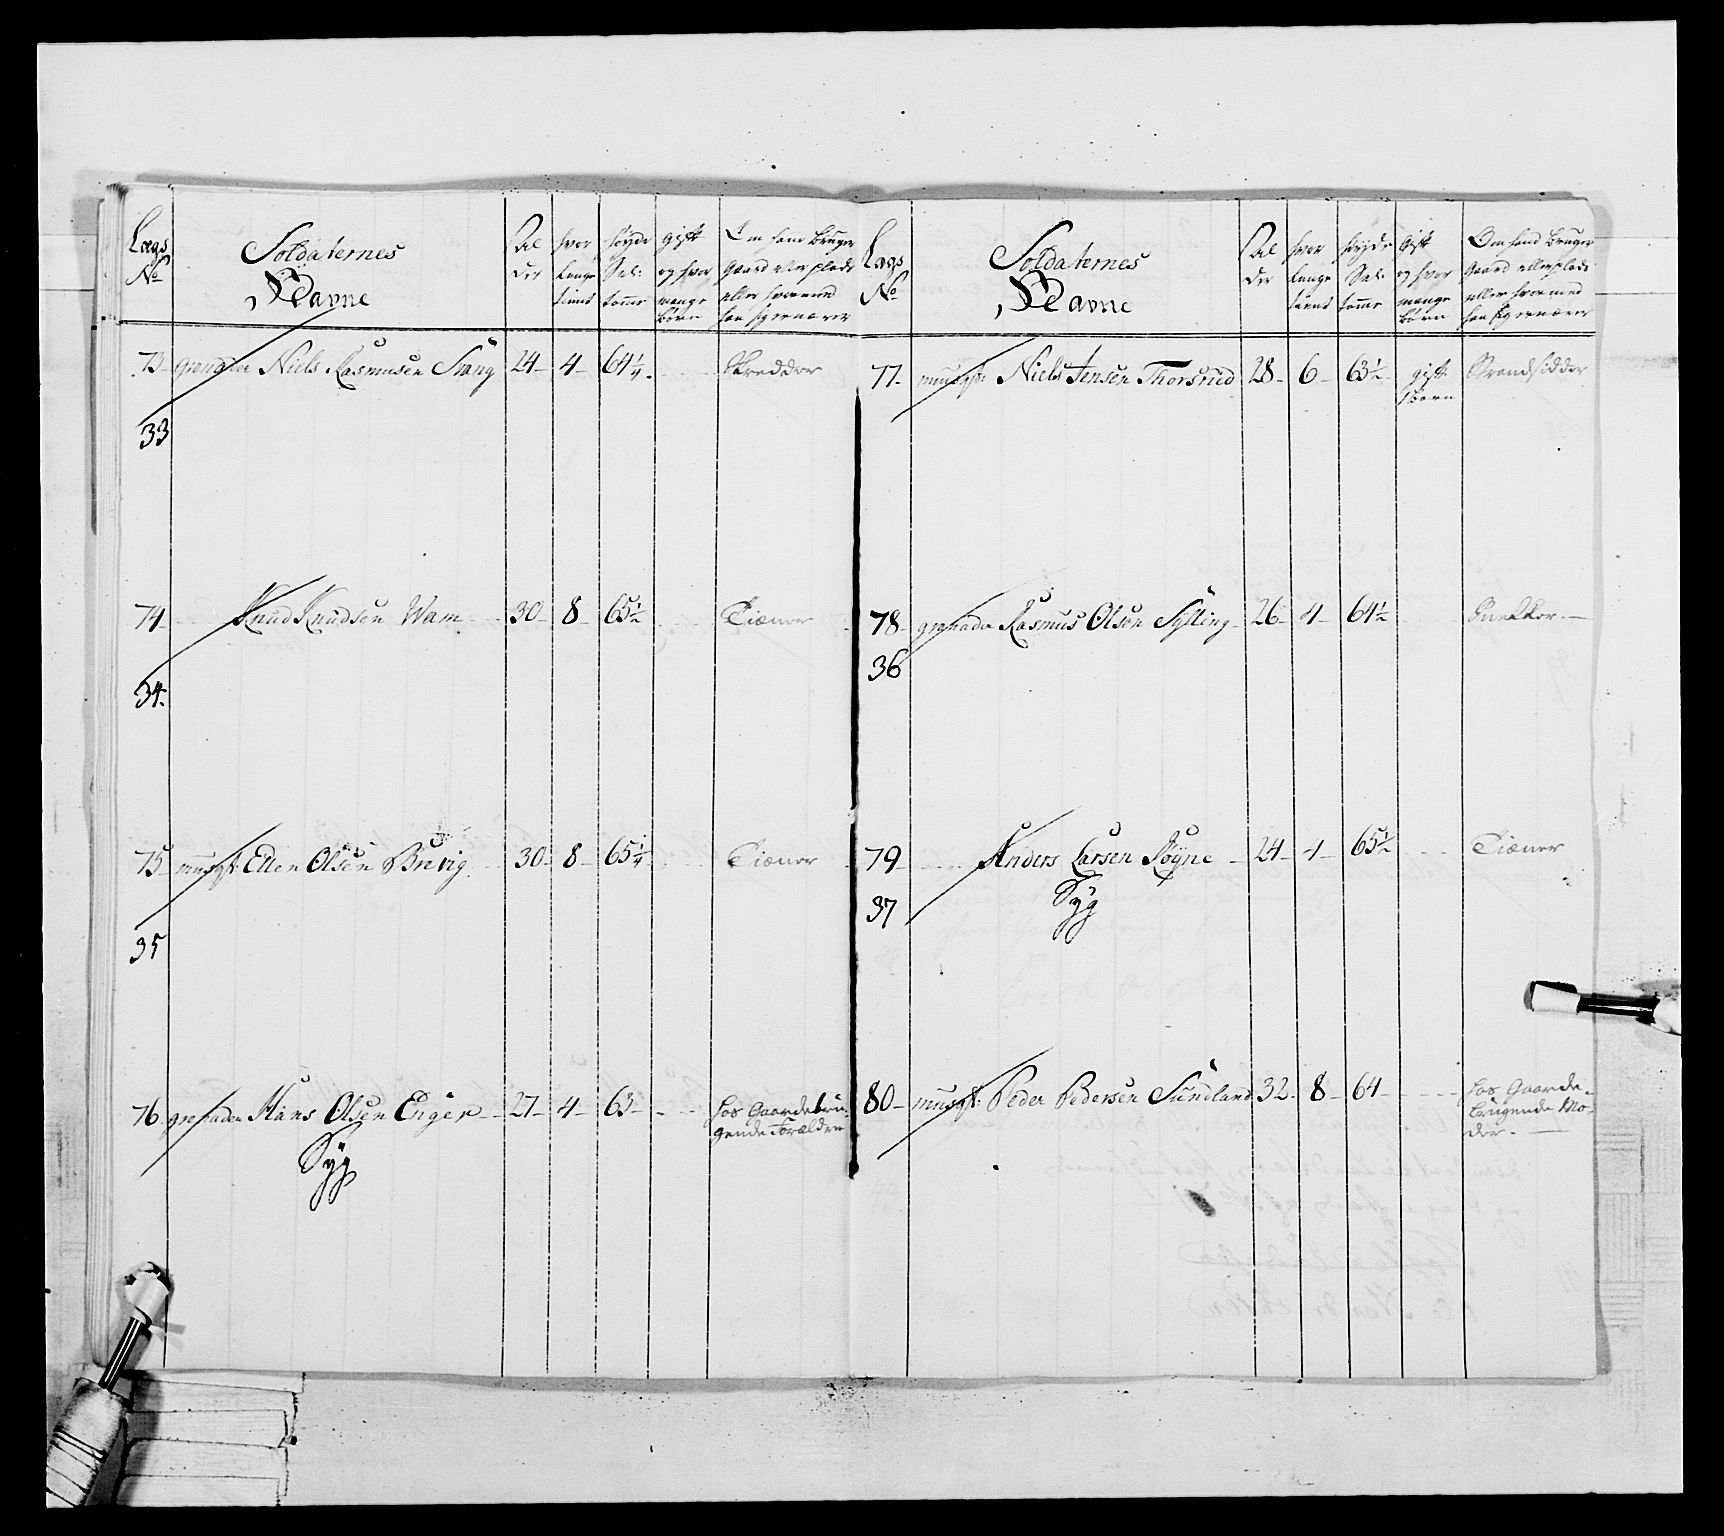 Lægs No | Soldaternes Navne | Al der | hvor Længe tient | høyde Sal: tomr | gift og hvor mange børn | Om hand bruger Gaard eller plads eller hvormed han sig ernærer
73 grenadeer Niels Rasmusen Stang 24 4 64 1/4 Skredder
33
74 Knud Knudsen Wam 30 8 65 1/2 Tiener
34.
75 musqt: Ellen Olsen Brevig 30 8 65 1/4 Tiener
35
76 grenadeer Hans Olsen Enger 27 4 63 hos Gaardebru-
gende Forældre
Syg
Lægs No | Soldaternes Navne | Al der | hvor Længe tient | høyde Sal: tomr | Gift og hvor mange børn | Om hand bruger Gaard eller plads eller hvormed han sig ernærer
77 musqt: Niels Jensen Thorsrud 28 6 63 1/2 gift Strandsidder
1 børn
78 grenadeer Rasmus Olsen Sylling 26 4 64 1/2 Snekker
36
79 Anders Larsen Røyne 24 4 65 1/2 Tiener
Syg
37
80 musqt: Peder Pedersen Sundland 32 8 64 hos Gaarde
brugende Mo-
der